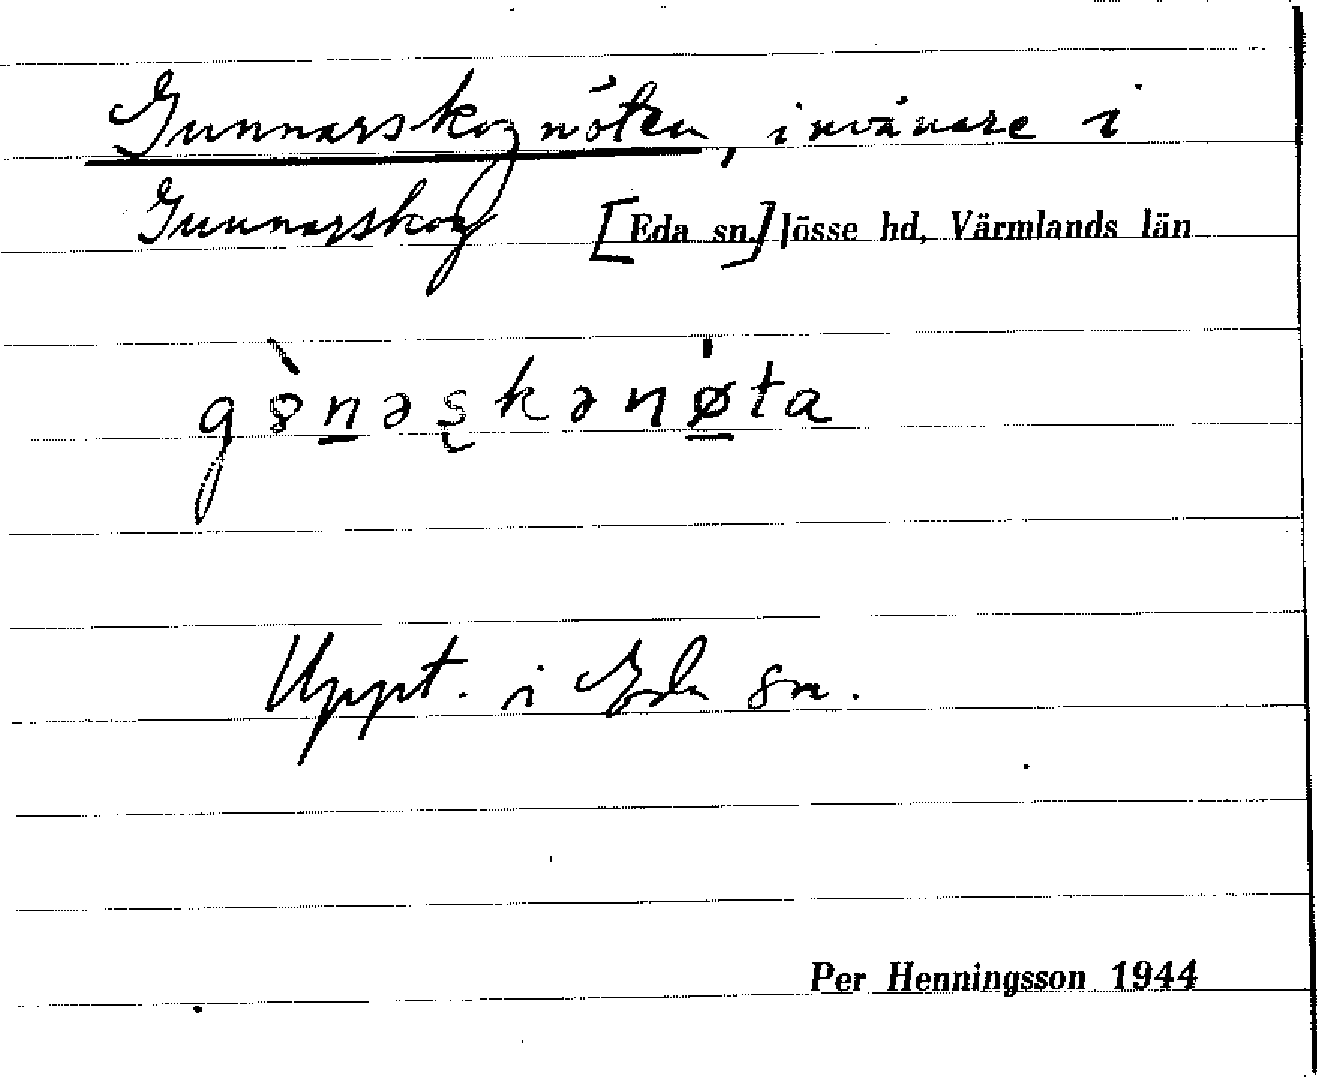 Gunnarskognöten, invånare i
Gunnarskog [Eda sn.] Jösse hd, Värmlands län
gȣ̀nəşkənø̍ta
Uppt. i Eda sn.
Per Henningsson 1944